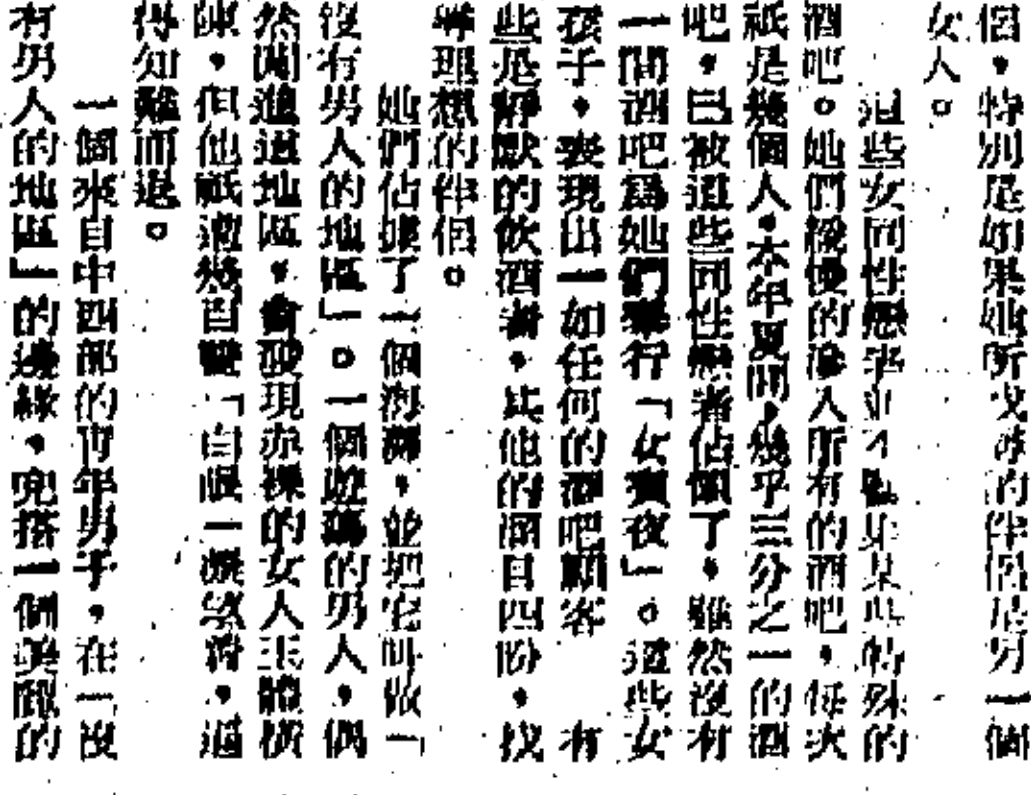 侶，特別是如果她所找尋的伴侶是另一個
女人。
這些女同性戀平，某某些特殊的
酒吧。她們緩慢的滲入所有的酒吧，每次
祇是幾個人，本年夏間，幾乎三分之一的酒
吧，已被這些同性戀者佔領了，雖然沒有
一間酒吧爲她們舉行「女賓夜」。這些女
孩子，表現出一如任何的酒吧顧客　有
些是靜默的飲酒者，其他的酒目四盼，找
尋理想的伴侶。
她們佔據了一個海灘，並把它叫做「
沒有男人的地區」。一個遊蕩的男人，偶
然闖進這地區，會發現赤裸的女人玉體橫
陳，但他祇遭幾百雙「白眼」，逼
得知難而退。
一個來自中西部的青年男子，在「沒
有男人的地區」的邊緣，兜搭一個美麗的